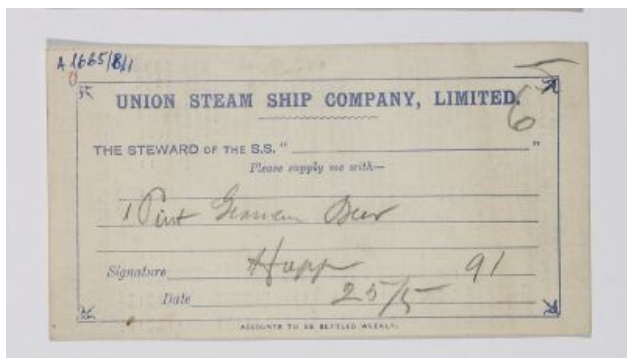 A 1665/8/1
6
UNION STEAM SHIP COMPANY, LIMITED.
THE STEWARD OF THE S.S. " "
Please supply me with—
1 Pint German Beer
Signature Happ 91
Date 25/5
ACCOUNTS TO BE SETTLED WEEKLY.